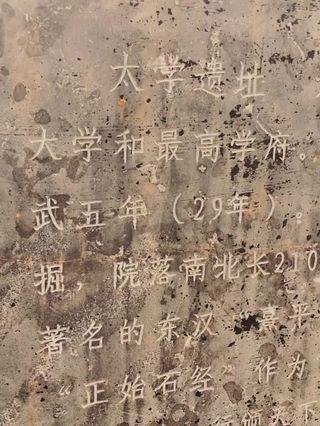 太学遗址
大学和最高学府。
武五年（29年）。
掘，院落南北长210
著名的东汉“熹平
“正始石经”作为
颁天下